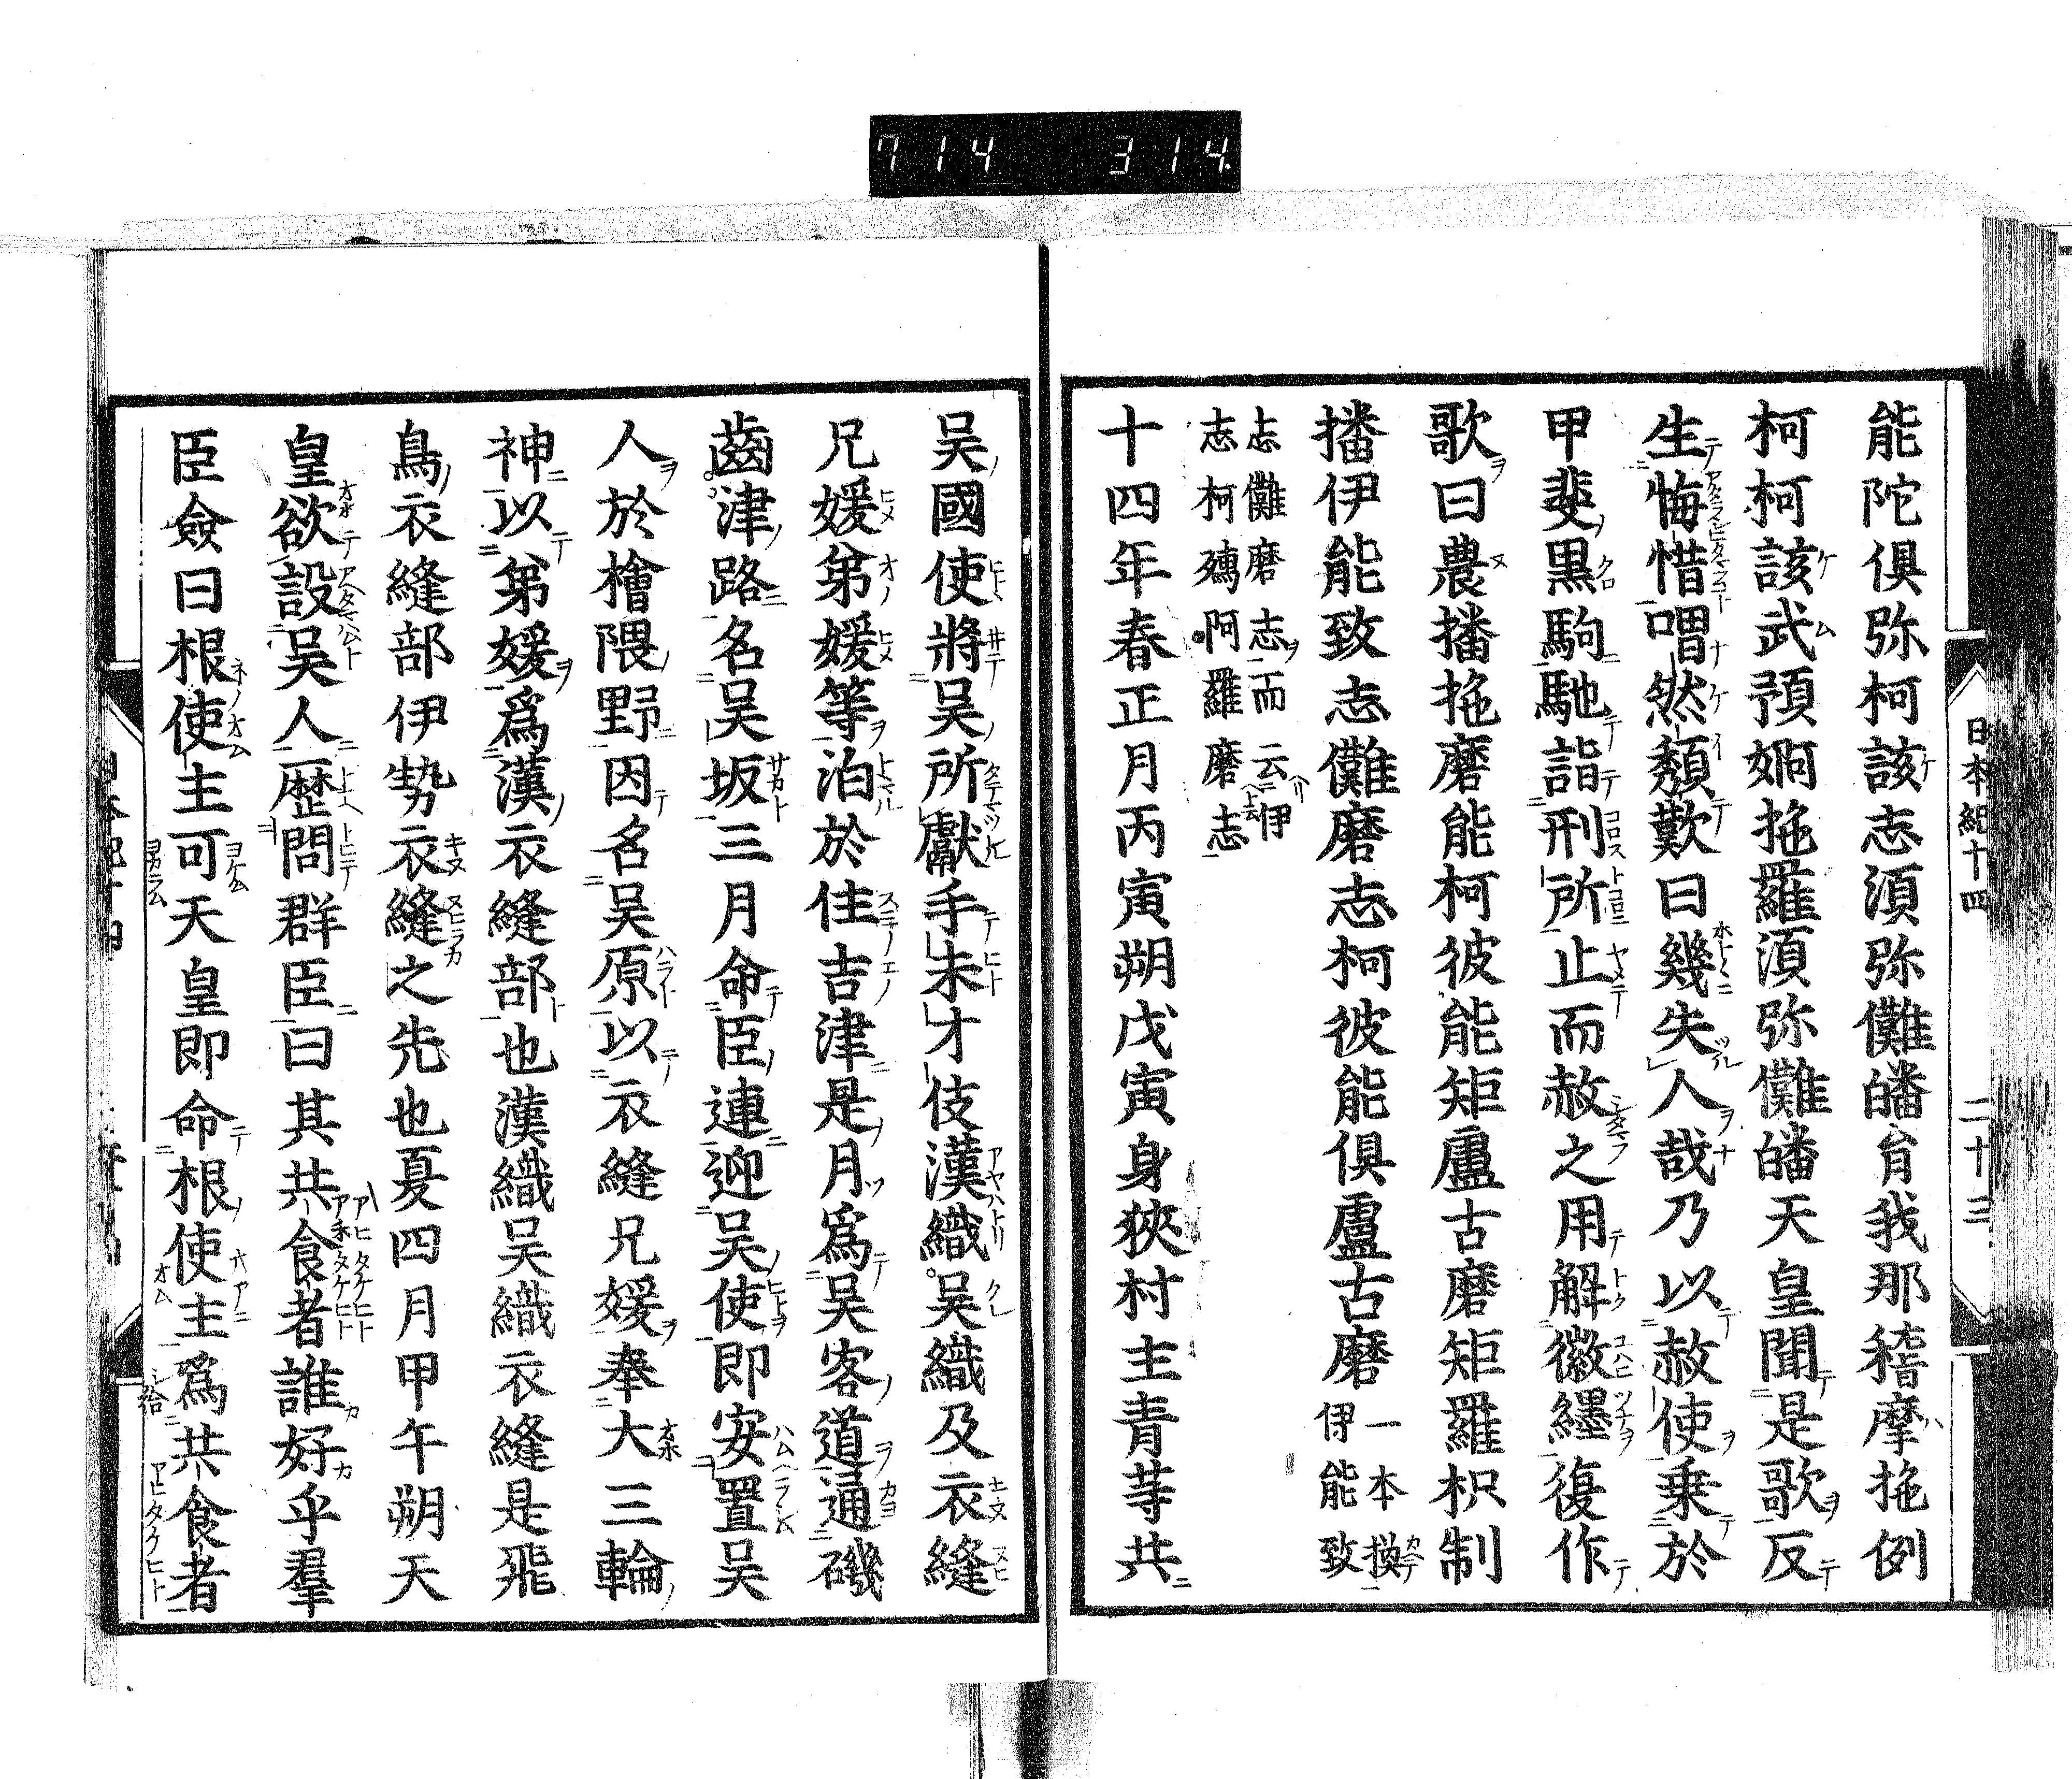 714 314
日本紀十四 二十三
能陀倶弥柯該志須弥儺皤旨我那稽摩拖例
柯柯該武預婀拖羅須弥儺皤天皇聞是歌反
生悔惜喟然頽歎曰幾失人哉乃以赦使乗於
甲斐黒駒馳詣刑所止而赦之用解徽纒復作
歌曰農播拖磨能柯彼能矩盧古磨矩羅枳制
播伊能致志儺磨志柯彼能倶盧古磨一本換伊能致
志儺磨志而云伊志柯孺阿羅磨志
十四年春正月丙寅朔戊寅身狹村主青等共
吴國使將吴所獻手末才伎漢織吴織及衣縫
兄媛弟媛等泊於住吉津是月為吴客道通磯
齒津路名吴坂三月命臣連迎吴使即安置吴
人於檜隈野因名吴原以衣縫兄媛奉大三輪
神以弟媛為漢衣縫部也漢織吴織衣縫是飛
鳥衣縫部伊勢衣縫之先也夏四月甲午朔天
皇欲設吴人歴問群臣曰其共食者誰好乎羣
臣僉曰根使主可天皇即命根使主為共食者